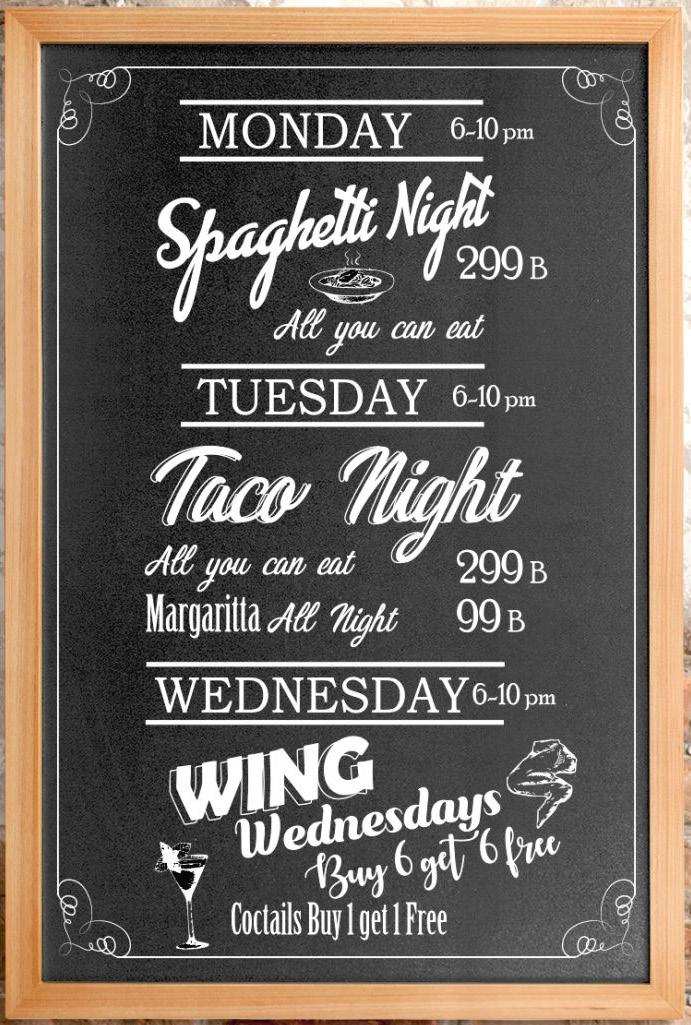 MONDAY 6-10 pm
Spaghetti Night
299 B
All you can eat
TUESDAY 6-10 pm
Taco Night
All you can eat 299 B
Margaritta All Night 99 B
WEDNESDAY 6-10 pm
WING
Wednesdays
Buy 6 get 6 free
Coctails Buy 1 get 1 Free